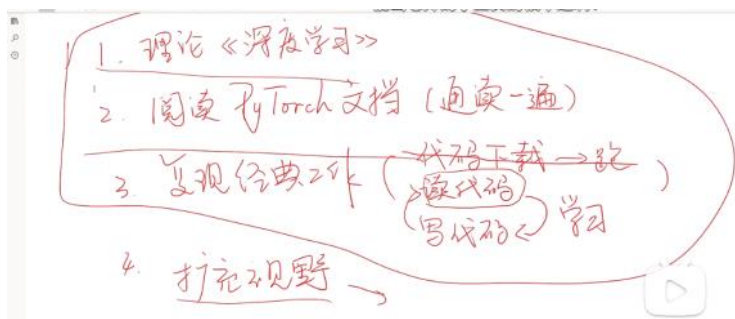 1. 理论《深度学习》
2. 阅读 PyTorch 文档 (通读一遍)
3. 复现经典工作 (代码下载→跑
读代码
写代码 学习)
4. 扩充视野 →